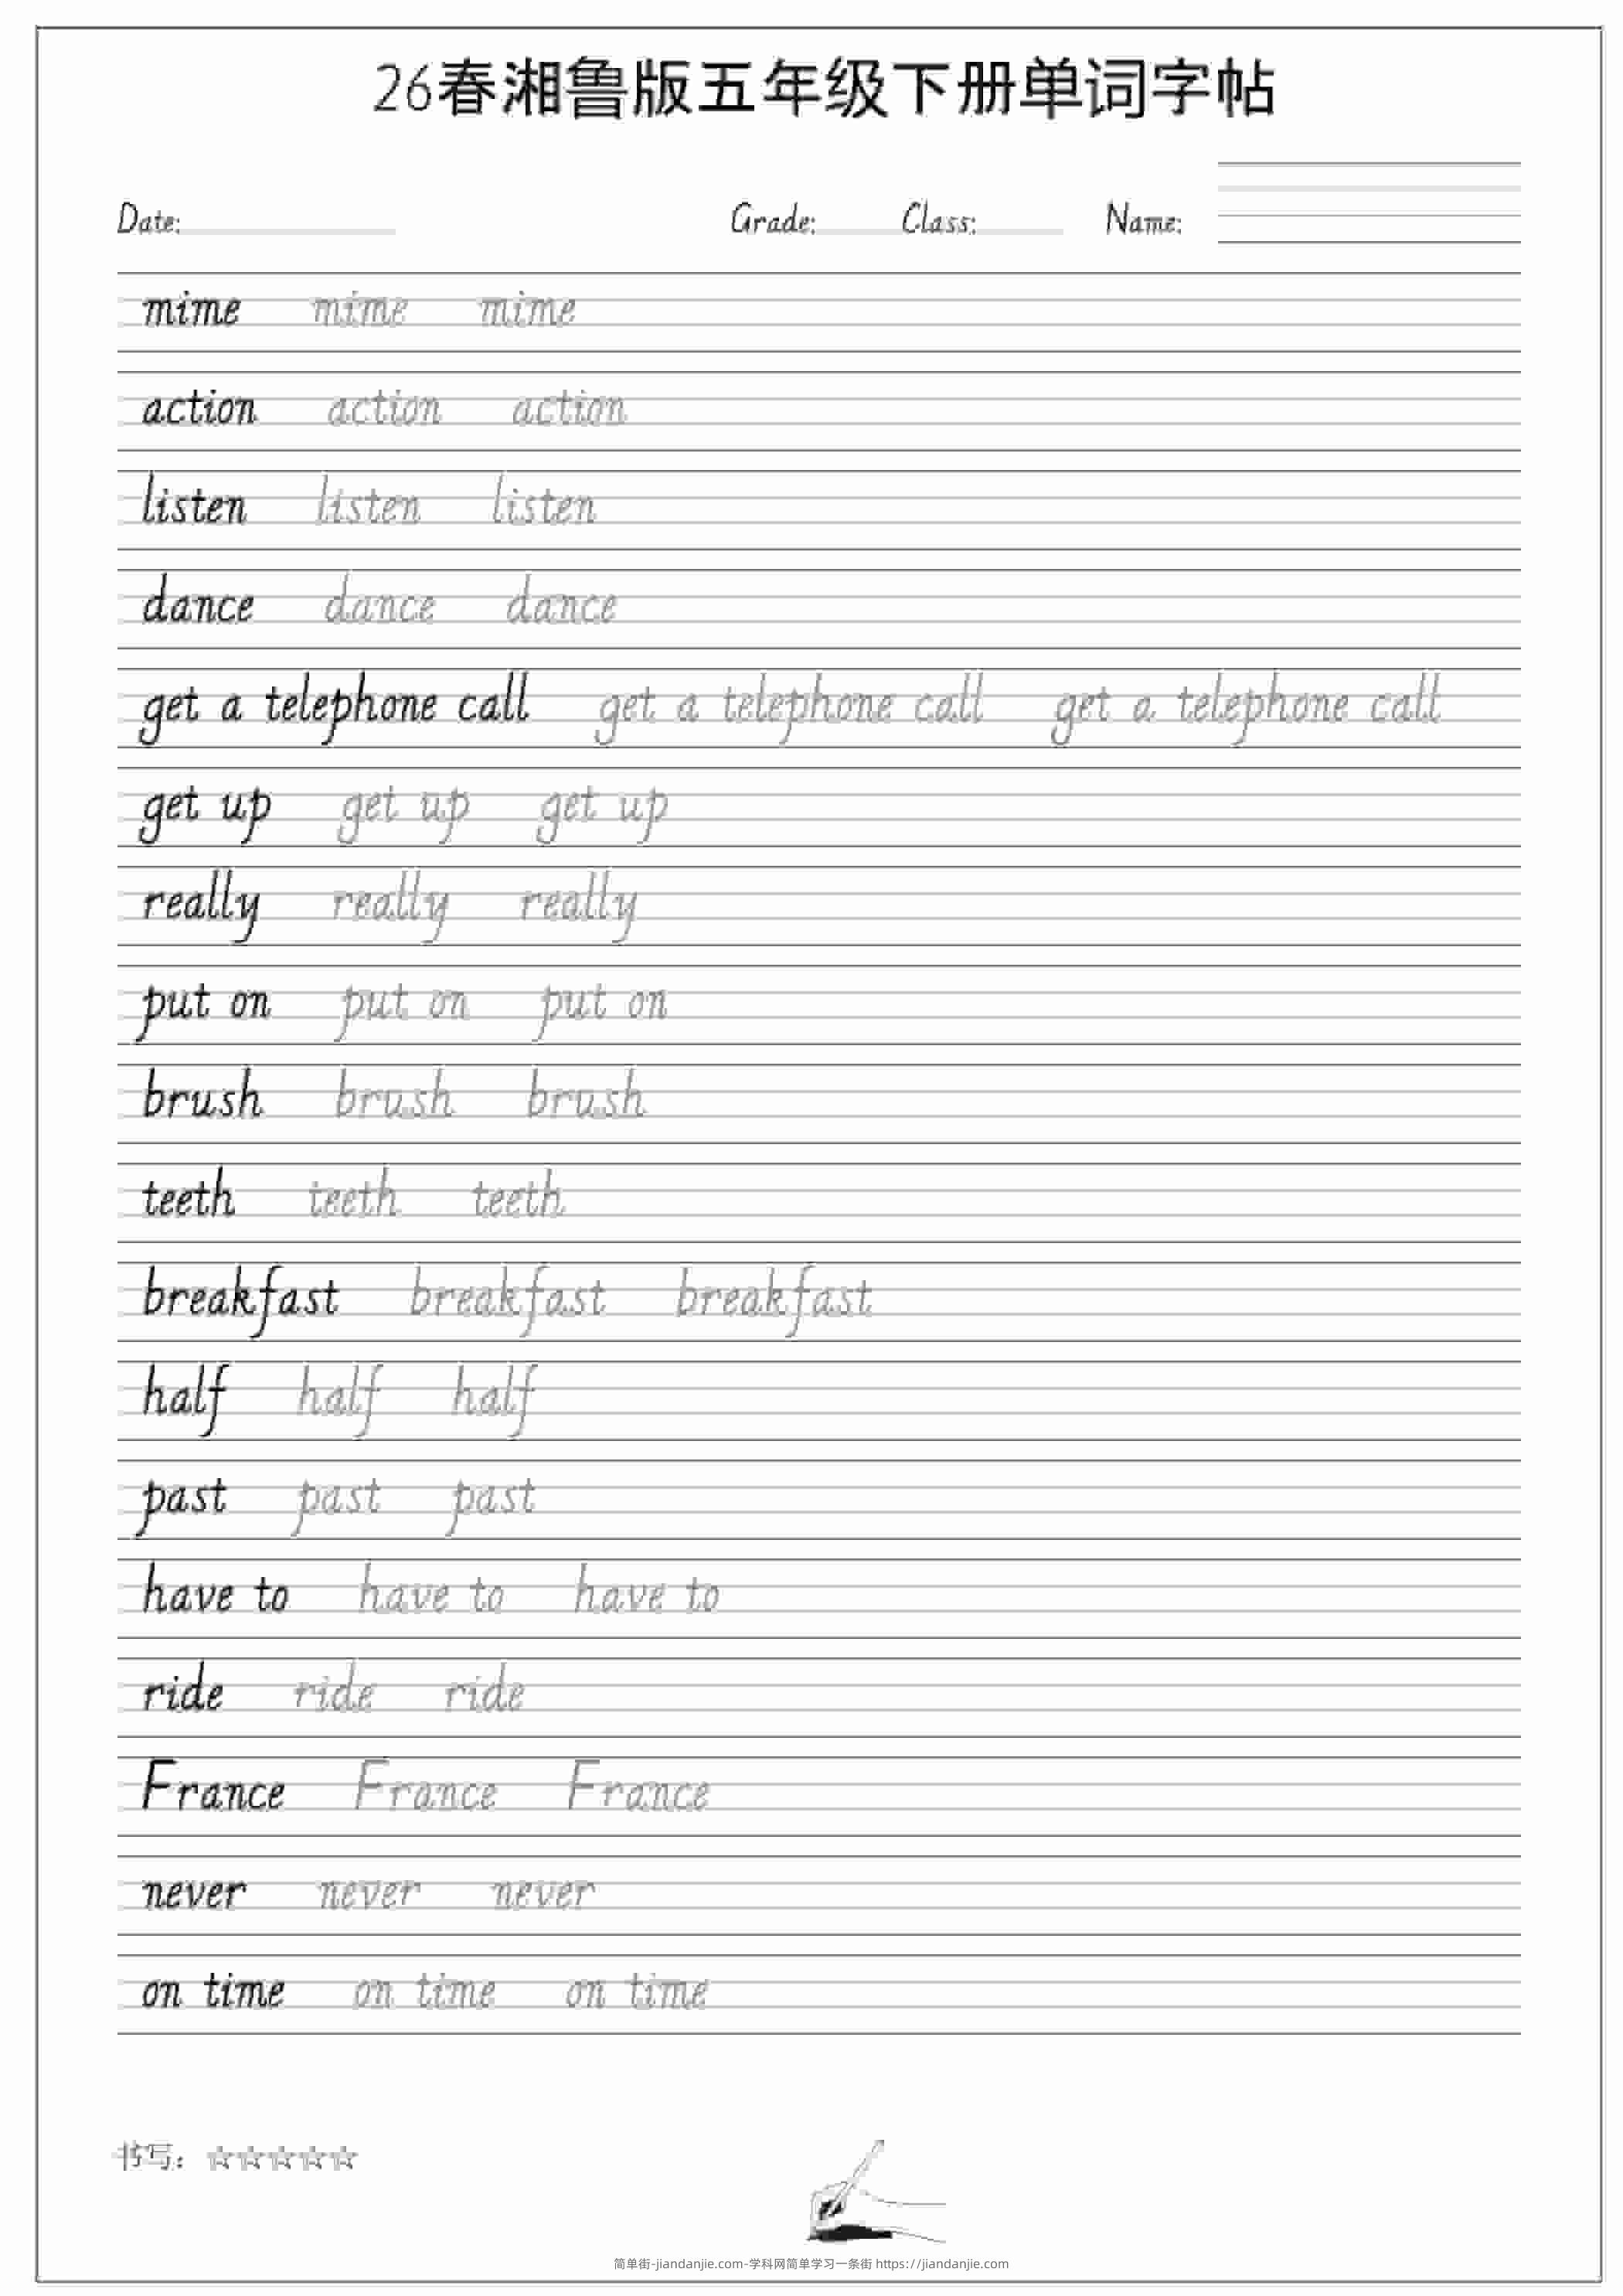 26春湘鲁版五年级下册单词字帖
Date: Grade: Class: Name:
mime mime mime
action action action
listen listen listen
dance dance dance
get a telephone call get a telephone call get a telephone call
get up get up get up
really really really
put on put on put on
brush brush brush
teeth teeth teeth
breakfast breakfast breakfast
half half half
past past past
have to have to have to
ride ride ride
France France France
never never never
on time on time on time
书写：☆☆☆☆☆
简单街-jiandanjie.com-学科网简单学习一条街 https://jiandanjie.com